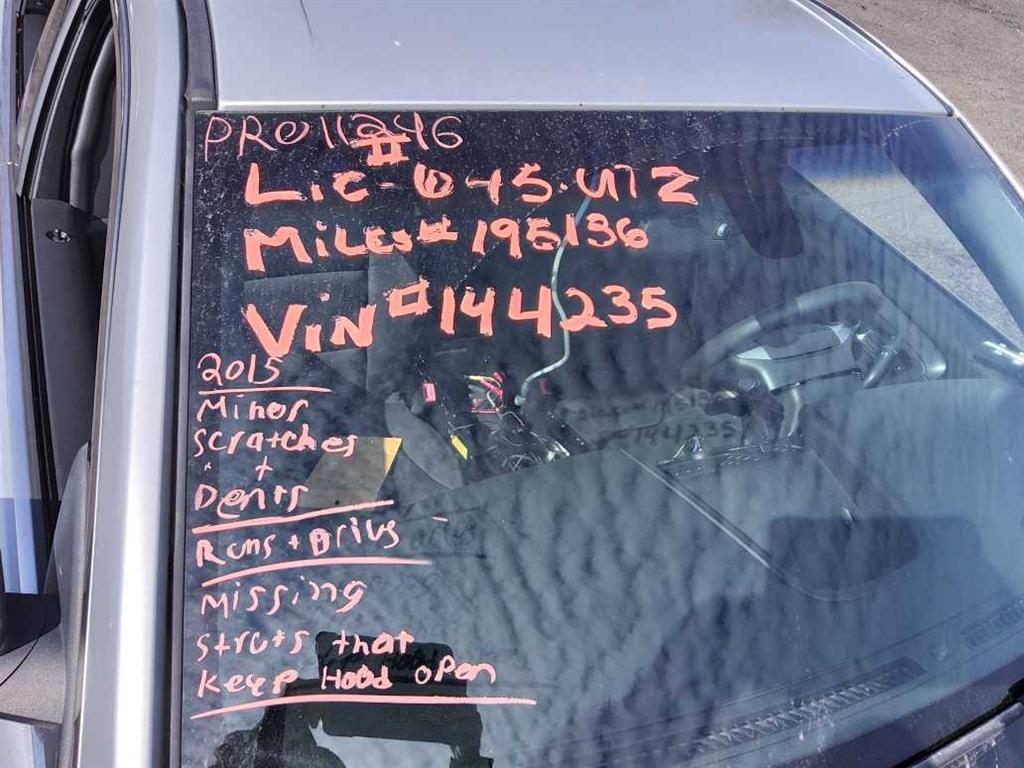 PRO11246
Lic# 045.UTZ
Miles# 195136
Vin# 144235
2015
Minor
scratches
+
Dents
Runs + Drivs
Missing
struts that
Keep Hood open